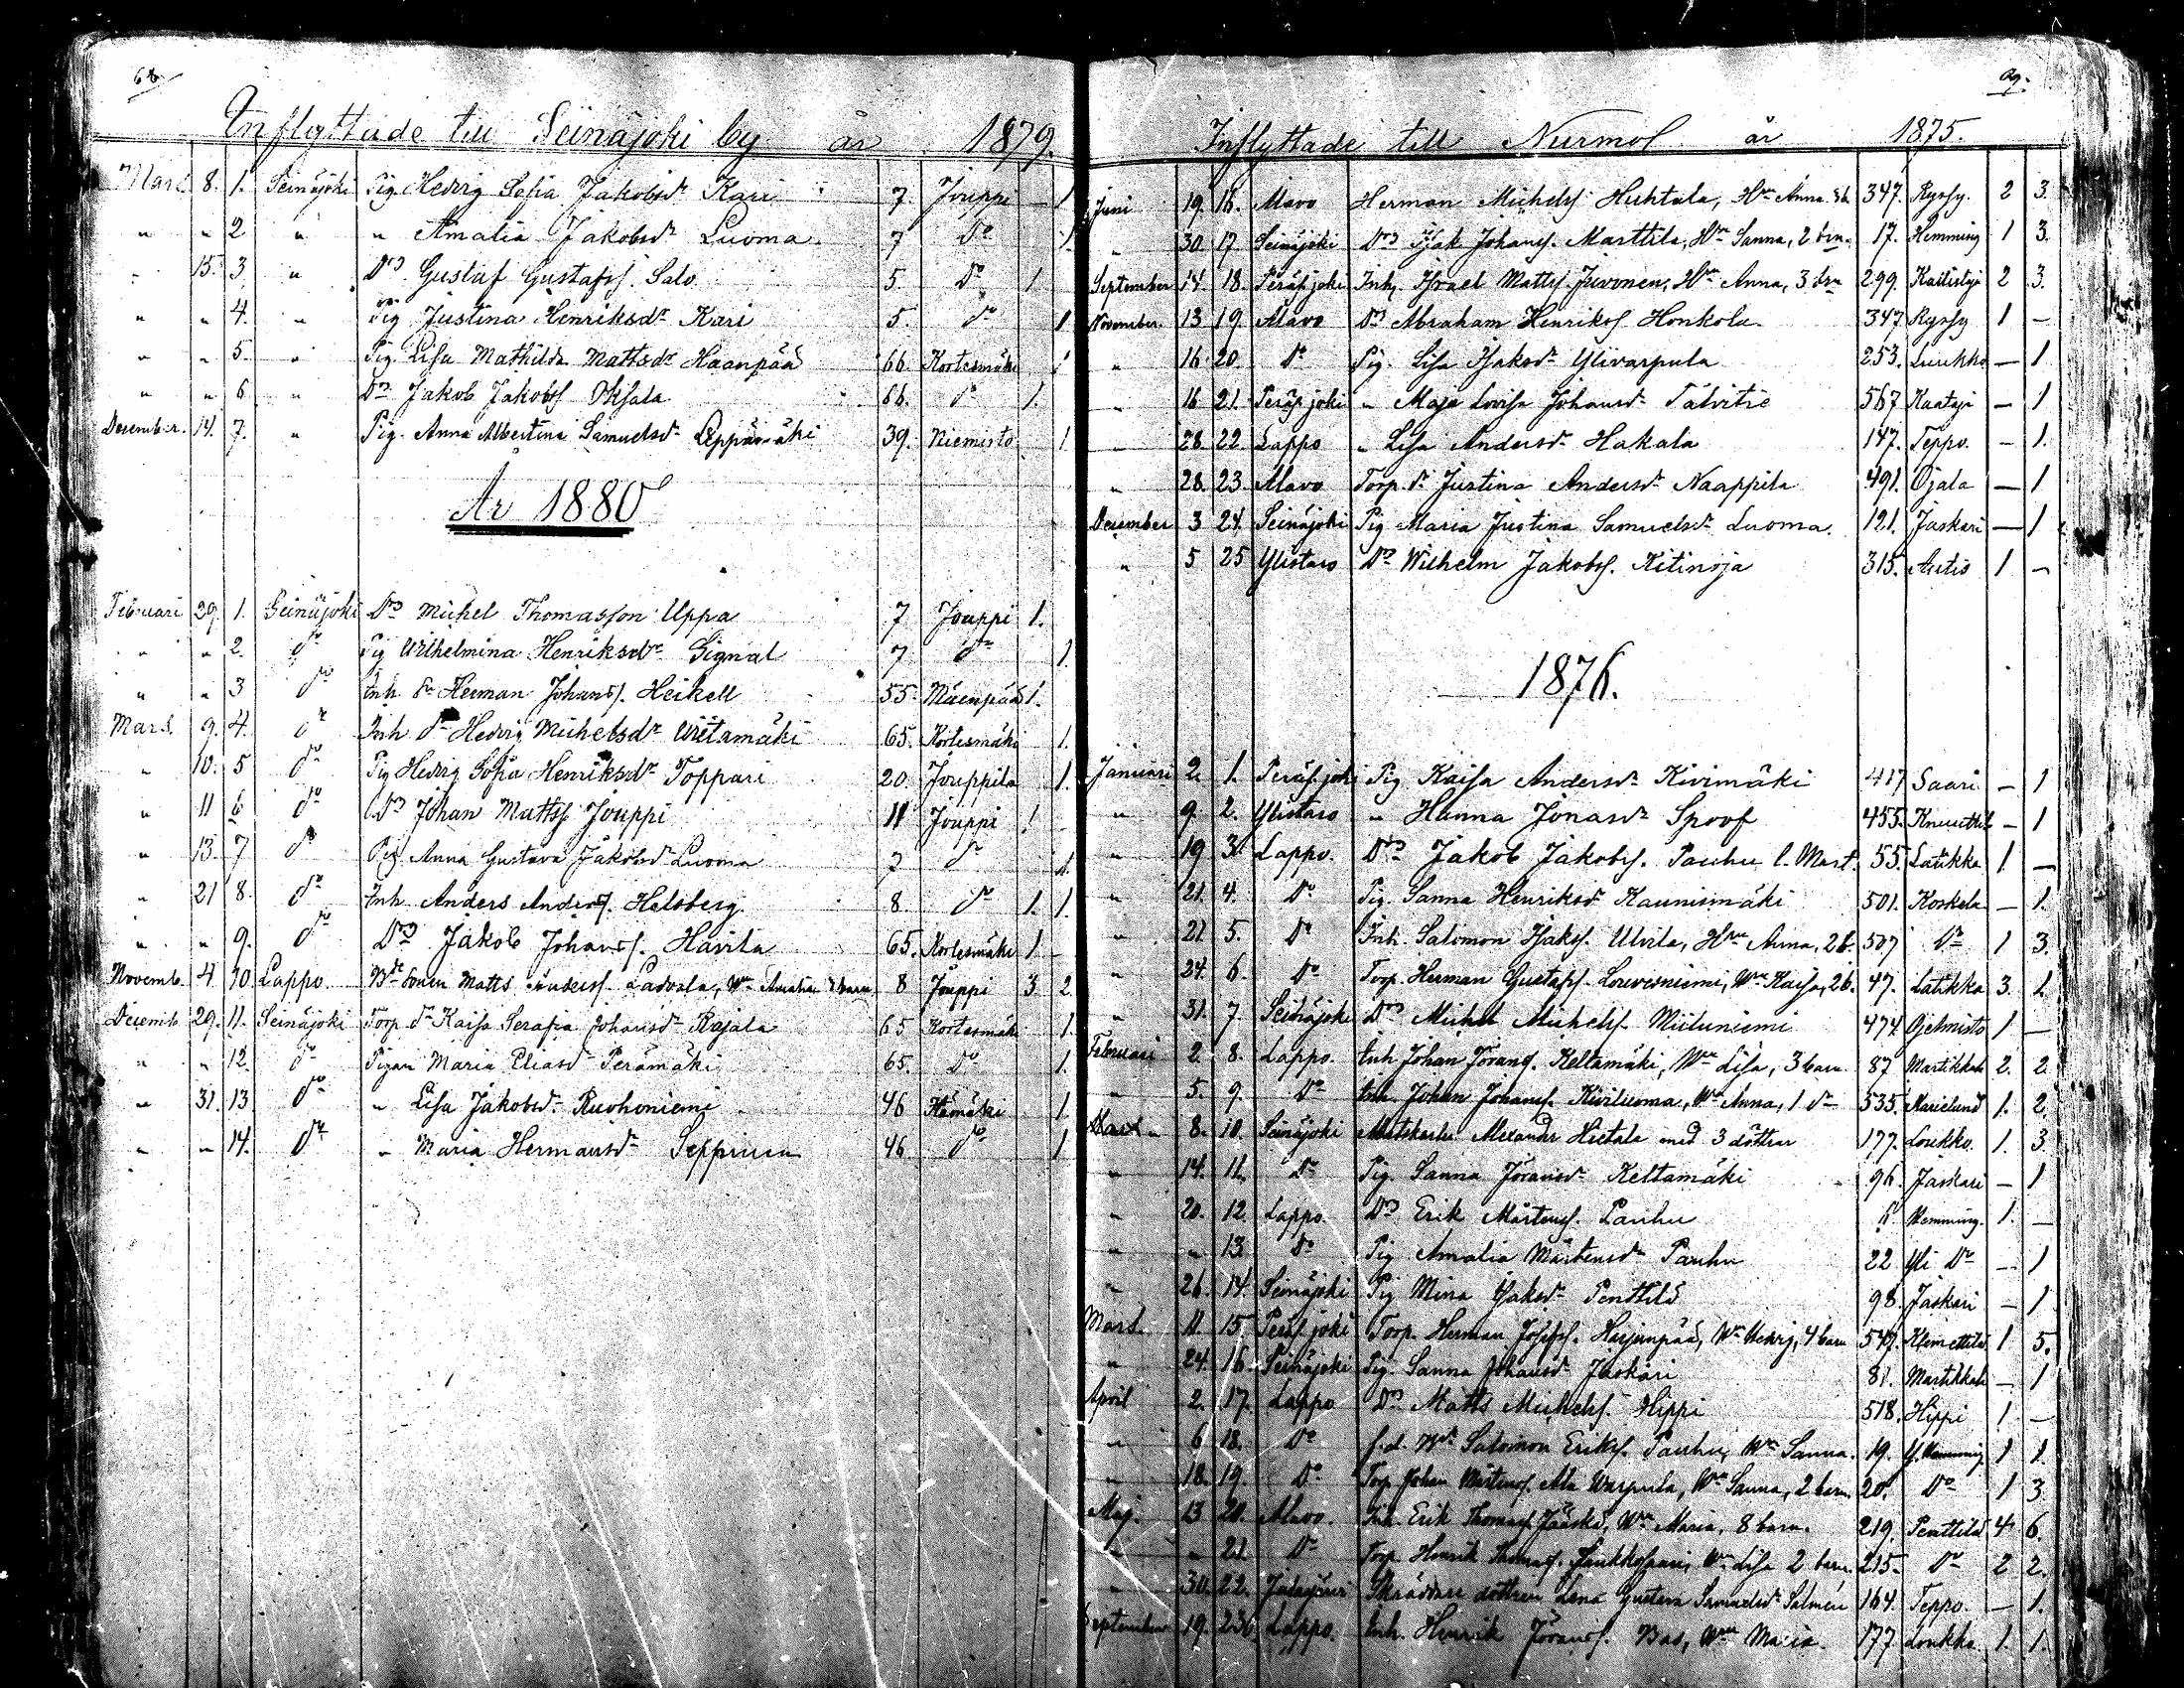 68
Inflyttade till Seinäjoki by år 1879.
Mars 8. 1. Seinäjoki Pig. Hedvig Sofia Jakobsdr Kari 7. Jouppi — 1
" " 2 " " Amalia Jakobsdr Luoma 7 Do 1.
" 15. 3 " Dr Gustaf Gustafss. Salo 5. Do 1.
" " 4. " Pig Justina Henriksdr Kari 5. Do 1
" " 5. " Pig. Lisa Mathilda Mattsdr Haanpää 66. Kortesmäki 1
" " 6 " Dr Jakob Jakobss Oksala 66. Do 1.
December. 14. 7. " Pig. Anna Albertina Samuelsdr Leppämäki 39. Niemistö 1
År 1880
Februari 29. 1. Seinäjoki Dr Michel Thomasson Uppa 7 Jouppi 1.
" " 2. Do Pig Wilhelmina Henriksdr Signal 7 Do 1.
" " 3 Do Inh. Sn Herman Johanss. Heikell 55. Mäenpää 1.
Mars. 9. 4. Do Inh. dr Hedvig Michelsdr Viitamäki 65. Kortesmäki 1.
" 10. 5 Do Pig Hedvig Sofia Henriksdr Toppari 20. Jouppila 1.
" 11 6 Do Dr Johan Mattss Jouppi 11 Jouppi 1
" 13. 7 Do Pig Anna Gustava Jakobsdr Luoma 7 Do 1.
" 21 8. Do Inh. Anders Anderss. Halsberg. 8. Do 1. 1.
" " 9. Do Dr Jakob Johanss. Havila 65. Kortesmäki 1
Novemb. 4 10. Lappo Matts Anderss. Ladvala, Hn Amalia barn 8 Jouppi 3 2
Decemb. 29. 11. Seinäjoki Torp. dr Kaisa Serafia Johansdr Rajala 65 Kortesmäki 1.
" " 12. Do Pigan Maria Eliasdr Perämäki 65. Do 1.
" 31. 13 Do " Lisa Jakobsdr Ruohoniemi 46 1.
" " 14. Do " Maria Hermansdr 46 Do 1
69.
Inflyttade till Nurmo år 1875.
Juni 19. 16. Alavo Herman Michelss Huhtala, Hn Anna 347. Ryssy. 2 3.
" 30. 17 Seinäjoki Dr Isak Johanss. Marttila, Hn Sanna, 2 brn. 17. Hemming 1 3.
September 14. 18. Peräs. joki Inh. Israel Mattss. Juvonen, Hn Anna, 3 brn 299. 2 3.
November. 13 19. Alavo Dr Abraham Henrikss Honkola. 347 Ryssy 1 —
" 16. 20. Do Pig. Lisa Isaksdr Ylivarpula 253. Luukko — 1
" 16 21. Peräs. joki " Maja Lovisa Johansdr Talvitie 567 — 1
" 28. 22. Lappo " Lisa Andersdr Hakala 147. Teppo. — 1.
" 28. 23. Alavo Torp. dr Justina Andersdr Naappila 491. Ojala — 1
December 3 24. Seinäjoki Pig Maria Justina Samuelsdr Luoma. 121. Jaskari — 1
" 5 25 Ylistaro Dr Wilhelm Jakobss. Kitinoja 315. Antis 1 —
1876.
Januari 2. 1. Peräs. joki Pig Kaisa Andersdr Kivimäki 417 Saari — 1
" 9. 2. Ylistaro " Hanna Jonasdr Spoof 455. — 1
" 19 3. Lappo. Dr Jakob Jakobss. Pauhu l. Mart. 55. Latikka 1. —
" 21. 4. Do Pig. Sanna Henriksdr Kaunismäki 501. Koskela — 1.
" 21. 5. Do Inh. Salomon Isakss. Ulvila, Hn Anna, 2 b. 507 Do 1 3.
" 24. 6. Do Torp. Herman Gustafss. Louvesniemi, Hn Kaisa, 2 b. 47. Latikka 3. 1.
" 31. 7. Seinäjoki Dr Michel Michelss. Miiluniemi 474 Ojelmisto 1 —
Februari 2. 8. Lappo. Inh. Johan Jöranss. Keltamäki, Hn Lisa, 3 barn. 87 Martikkala 2. 2
" 5. 9. Do Inh. Johan Johanss. Kiviluoma, Hn Anna, 1 Do 535. Marielund 1. 2.
" 8. 10. Seinäjoki Alexander Hietala med 3 döttrar 177. Loukko. 1. 3.
" 14. 11. Do Pig. Sanna Jöransdr Keltamäki 96. Jaskari — 1
" 20. 12. Lappo. Dr Erik Mårtenss. Pauhu Hemming. 1. —
" " 13. Do Pig Amalia Mårtensdr Pauhu 22 Yli Do — 1
" 26. 14. Seinäjoki Pig Mina Isaksdr Penttilä 98. Jaskari — 1
Mars. 11. 15. Peräs. joki Torp. Herman Josefss. Harjunpää, Hn Hedvig, 4 barn 549. Klemettilä 1 5.
" 24. 16. Seinäjoki Pig. Sanna Johansdr Jaskari 81. Martikkala — 1
April 2. 17. Lappo Dr Matts Michelss. Hippi 518. Hippi 1 —
" 6 18. Do f.d. Salomon Erikss. Pauhu, Hn Sanna. 19. Y. Hemming 1 1.
" 18. 19. Do Torp Johan Mårtenss. Ala Warpula, Hn Sanna, 2 barn. 20. Do 1 3.
Maj. 13 20. Alavo. Inh. Erik Thomass. Jääskä, Hn Maria, 8 barn. 219. Penttilä 4 6.
" " 21. Do Torp. Henrik Thomass. Hn Lisa 2 barn. 215. Do 2 2.
" 30. 22. Jalasjärvi Skräddare dottren Lena Gustava Samuelsdr Salmén 164. Teppo. — 1.
September 19. 23. Lappo. Inh. Henrik Jöranss. Bas, Hn Maria. 177. Loukko 1. 1.